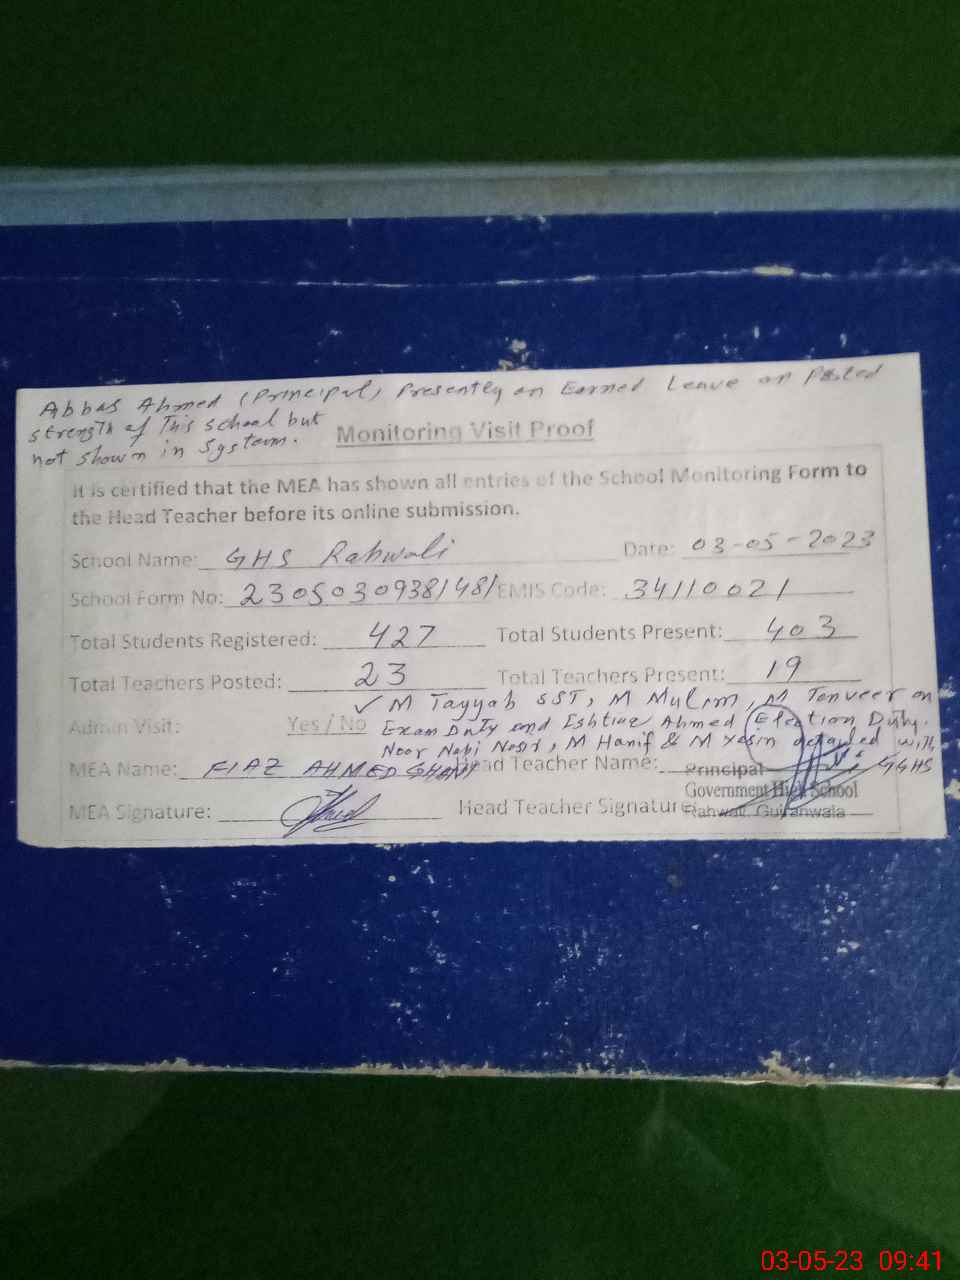 Abbas Ahmed (Principal) Presently on Earned Leave on Posted
strength of This school but
not shown in System.
Monitoring Visit Proof
It is certified that the MEA has shown all entries of the School Monitoring Form to
the Head Teacher before its online submission.
School Name: GHS Rahwali Date: 03-05-2023
School Form No: 2305030938/48/ EMIS Code: 34110021
Total Students Registered: 427 Total Students Present: 403
Total Teachers Posted: 23 Total Teachers Present: 19
✓ M Tayyab SST, M Mulim, M Tanveer on
Admin Visit: Yes / No Exam Duty and Eshtiaz Ahmed Election Duty.
Noor Nabi Nasir, M Hanif & M Yasin with
MEA Name: FIAZ AHMED GHANI Head Teacher Name: Principal GGHS
Government High School
MEA Signature: Head Teacher Signature: Rahwali, Gujranwala
03-05-23 09:41